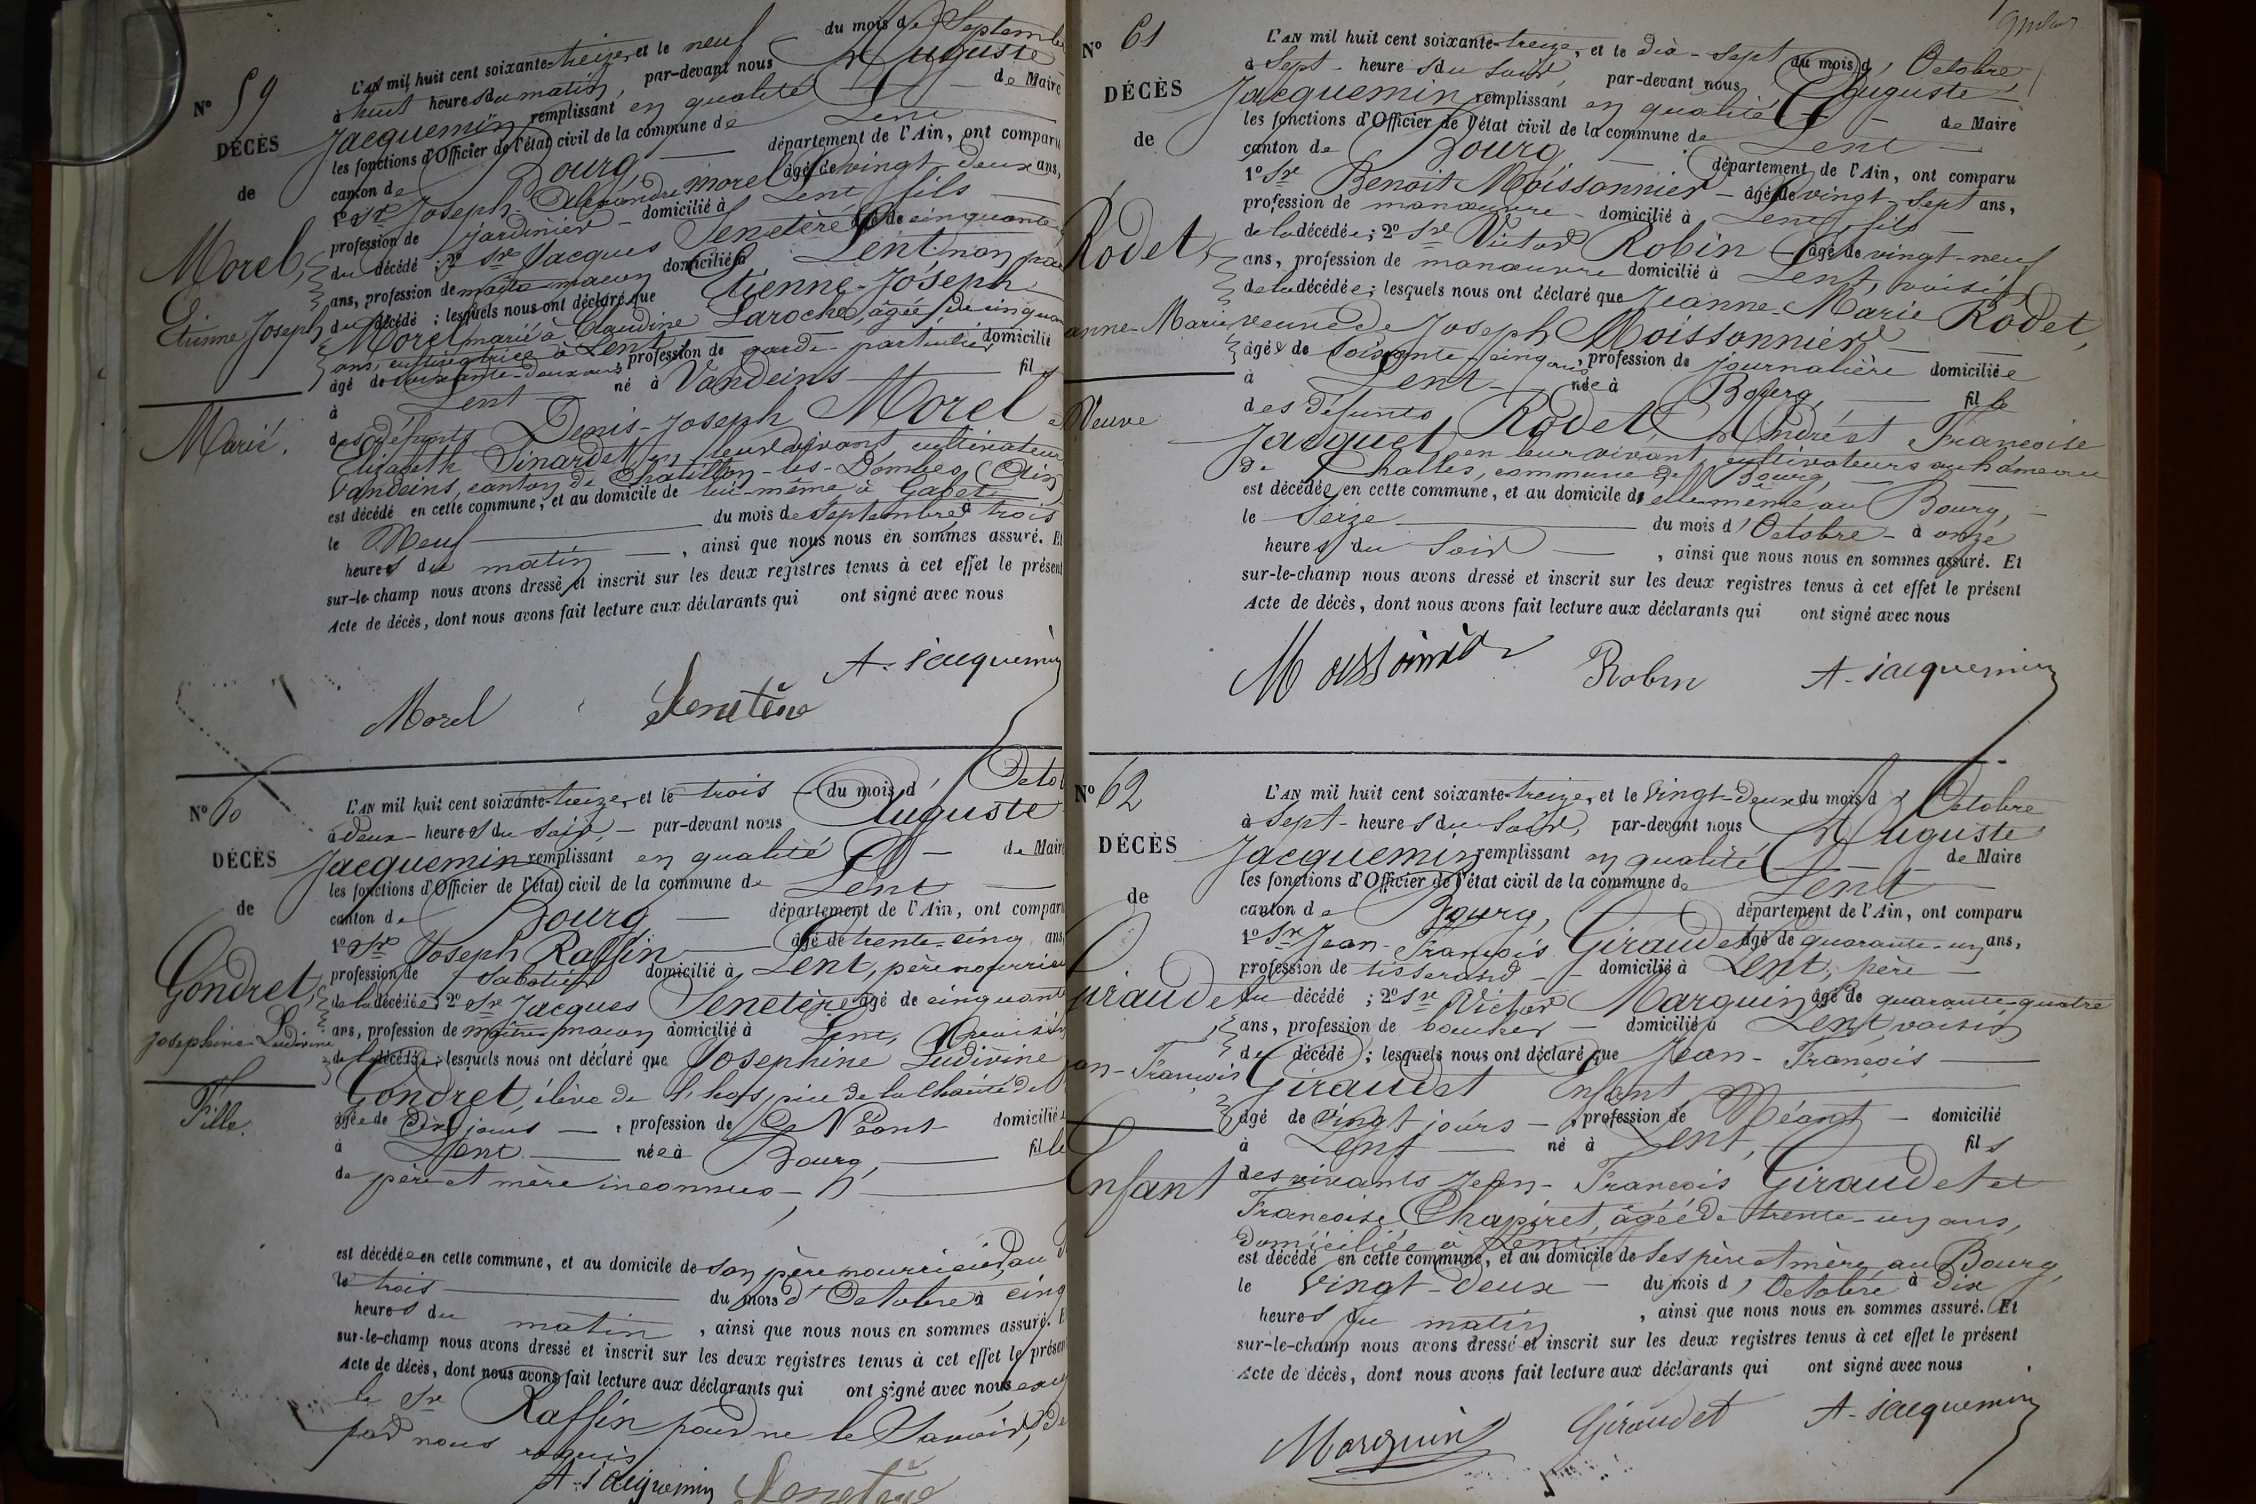 N° 59
DÉCÈS
de
Morel,
Etienne Joseph
Marié.
L'AN mil huit cent soixante-treize, et le neuf du mois de Septembre
à huit heures du matin, par-devant nous Auguste
Jacquemin remplissant en qualité de Maire
les fonctions d'Officier de l'état civil de la commune de Lent
canton de Bourg, département de l'Ain, ont comparu
1° Sr Joseph Alexandre Morel âgé de vingt-deux ans,
profession de jardinier domicilié à Lent fils
du décédé ; 2° Sr Jacques Senetère âgé de cinquante
ans, profession de maître-maçon domicilié à Lent non
du décédé ; lesquels nous ont déclaré que Etienne-Joseph
Morel marié à Claudine Laroche, âgée de cinquante
ans, cultivatrice à Lent
âgé de soixante-deux ans profession de garde-particulier domicilié
à Lent né à Vandeins fils
des défunts Denis-Joseph Morel
Elizabeth Sinardet en leur vivant cultivateurs
Vandeins, canton de Chatillon-les-Dombes, (Ain)
est décédé en cette commune, et au domicile de lui-même à
le Neuf du mois de Septembre à trois
heures du matin, ainsi que nous nous en sommes assuré. Et
sur-le-champ nous avons dressé et inscrit sur les deux registres tenus à cet effet le présent
Acte de décès, dont nous avons fait lecture aux déclarants qui ont signé avec nous
A. Jacquemin
Morel Senetère
N° 60
DÉCÈS
de
Gondret,
Josephine Ludivine
Fille.
L'AN mil huit cent soixante-treize, et le trois du mois d'Octo
à deux heures du soir, par-devant nous Auguste
Jacquemin remplissant en qualité de Maire
les fonctions d'Officier de l'état civil de la commune de Lent
canton de Bourg département de l'Ain, ont comparu
1° Sr Joseph Raffin âgé de trente-cinq ans,
profession de Sabotier domicilié à Lent, père nourricier
de la décédée ; 2° Sr Jacques Senetère âgé de cinquante
ans, profession de maître-maçon domicilié à Lent,
de la décédée ; lesquels nous ont déclaré que Josephine Ludivine
Gondret, élève de l'hospice de la Charité de
âgée de Dix jours, profession de Néant domiciliée
à Lent née à Bourg, fille
de père et mère inconnus
est décédée en cette commune, et au domicile de son père nourricier, au
le trois du mois d'Octobre à cinq
heures du matin, ainsi que nous nous en sommes assuré. Et
sur-le-champ nous avons dressé et inscrit sur les deux registres tenus à cet effet le présent
Acte de décès, dont nous avons fait lecture aux déclarants qui ont signé avec nous
le Sr Raffin pour ne le Savoir, de
par nous requis
A. Jacquemin Senetère
N° 61
DÉCÈS
de
Rodet,
anne-Marie
Veuve
L'AN mil huit cent soixante-treize, et le dix-sept du mois d'Octobre
à Sept heures du Soir, par-devant nous Auguste
Jacquemin remplissant en qualité de Maire
les fonctions d'Officier de l'état civil de la commune de Lent
canton de Bourg département de l'Ain, ont comparu
1° Sr Benoit Moissonnier âgé de vingt-sept ans,
profession de manœuvre domicilié à Lent, fils
de la décédée ; 2° Sr Victor Robin âgé de vingt-neuf
ans, profession de manœuvre domicilié à Lent, voisin
de la décédée ; lesquels nous ont déclaré que Jeanne-Marie Rodet,
veuve de Joseph Moissonnier
âgée de soixante-cinq ans, profession de Journalière domiciliée
à Lent née à Bourg, fille
des défunts Rodet André et Françoise
Jacquet en leur vivant cultivateurs au hameau
de Challes, commune de Bourg,
est décédée en cette commune, et au domicile de elle-même au Bourg,
le Seize du mois d'Octobre à onze
heures du Soir, ainsi que nous nous en sommes assuré. Et
sur-le-champ nous avons dressé et inscrit sur les deux registres tenus à cet effet le présent
Acte de décès, dont nous avons fait lecture aux déclarants qui ont signé avec nous
Robin A. Jacquemin
N° 62
DÉCÈS
de
Giraudet
an-François
Enfant
L'AN mil huit cent soixante-treize, et le vingt-deux du mois d'Octobre
à Sept heures du Soir, par-devant nous Auguste
Jacquemin remplissant en qualité de Maire
les fonctions d'Officier de l'état civil de la commune de Lent
canton de Bourg, département de l'Ain, ont comparu
1° Sr Jean-François Giraudet âgé de quarante-un ans,
profession de tisserand domicilié à Lent, père
du décédé ; 2° Sr Victor Marguin âgé de quarante-quatre
ans, profession de domicilié à Lent, voisin
du décédé ; lesquels nous ont déclaré que Jean-François
Giraudet Enfant
âgé de vingt jours, profession de Néant domicilié
à Lent né à Lent, fils
des vivants Jean-François Giraudet et
Françoise Chapiret, âgée de trente-un ans,
domiciliée à Lent
est décédé en cette commune, et au domicile de Ses père et mère au Bourg,
le Vingt-Deux du mois d'Octobre à Dix
heures du matin, ainsi que nous nous en sommes assuré. Et
sur-le-champ nous avons dressé et inscrit sur les deux registres tenus à cet effet le présent
Acte de décès, dont nous avons fait lecture aux déclarants qui ont signé avec nous
Marguin Giraudet A. Jacquemin